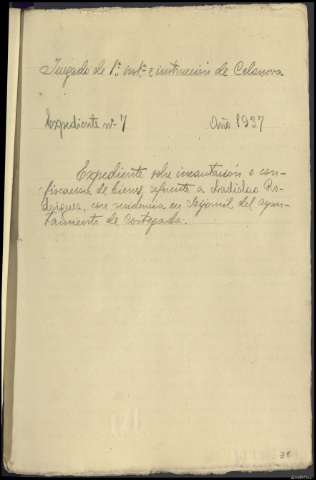 Juzgado de 1ª inst.ª e instrucción de Celanova
Expediente nº 7 Año 1937
Expediente sobre incautación o con-
fiscación de bienes, referente a Ladislao Ro-
dríguez, con residencia en del ayun-
tamiento de Cortegada.